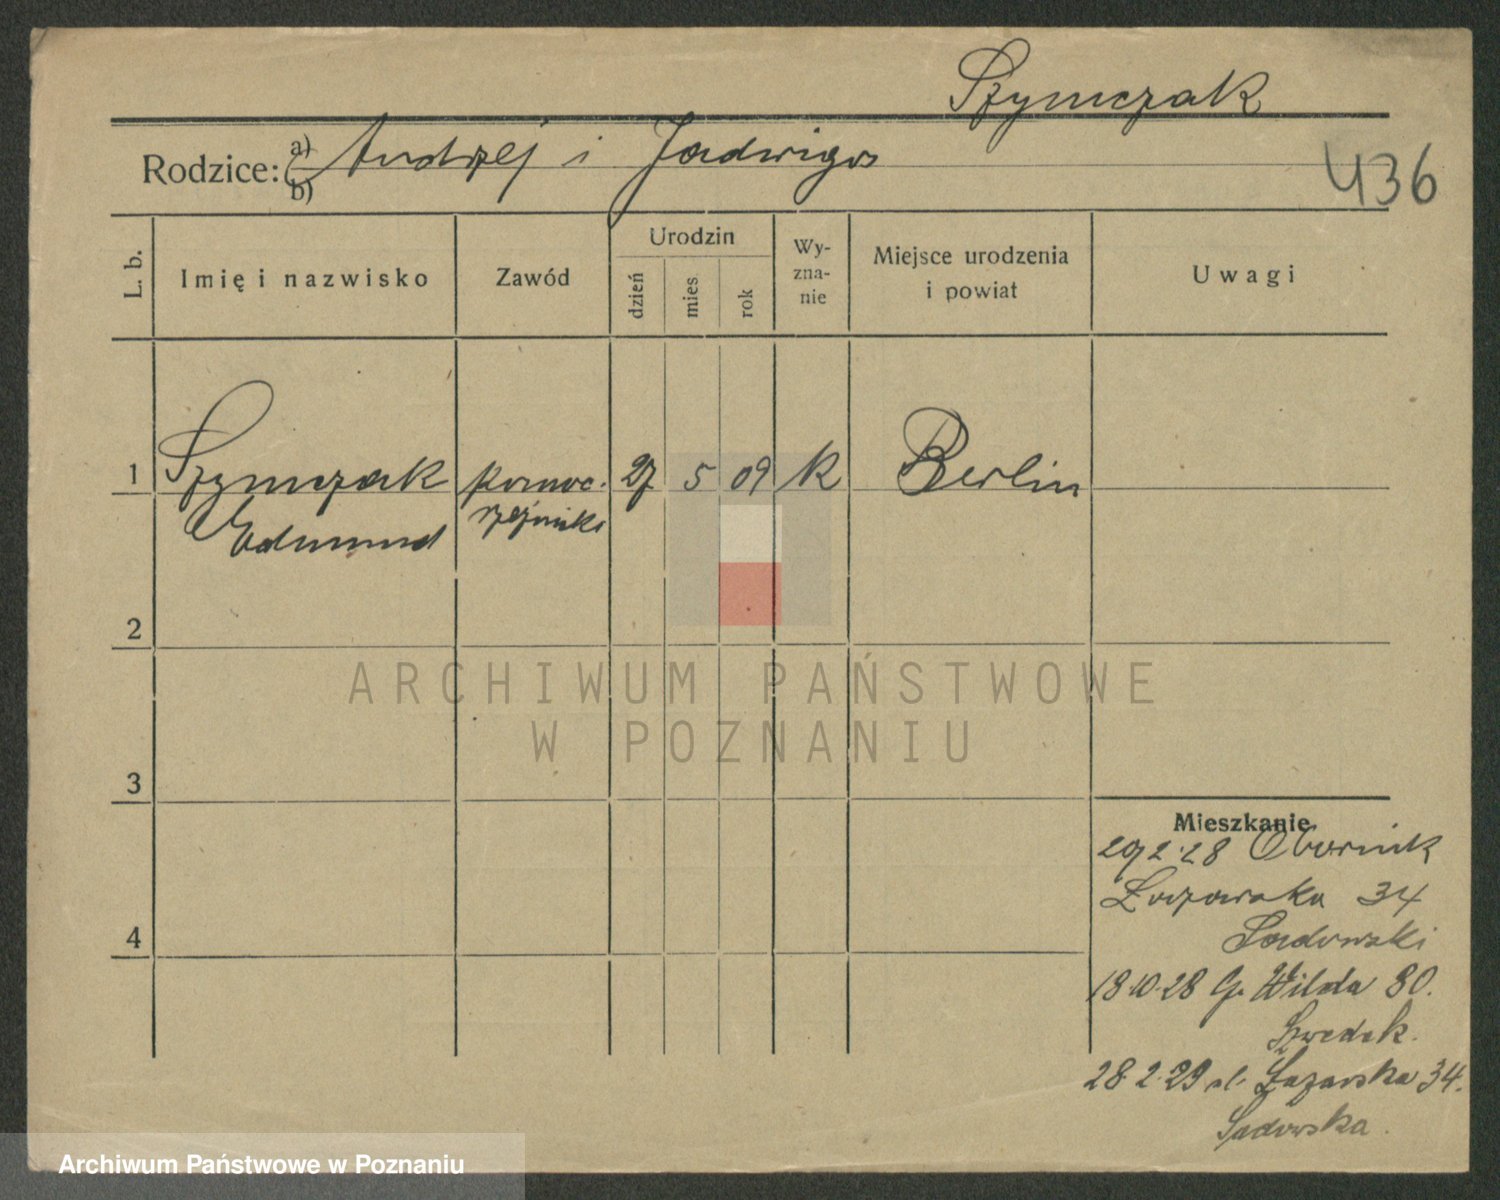 Szymczak
Rodzice: a) b) Andrzej i Jadwiga
436
L. b. Imię i nazwisko Zawód Urodzin dzień mies. rok Wy-zna-nie Miejsce urodzenia i powiat Uwagi
1 Szymczak pomoc. 27 5 09 k Berlin
Edmund rzeźnicki
2
ARCHIWUM PAŃSTWOWE
W POZNANIU
3
Mieszkanie
29 2.28 Obornik
Łazarska 34
Sadowski
4
18.10.28 G. Wilda 80.
Szwedek.
28.2.29 ul. Łazarska 34.
Sadowska.
Archiwum Państwowe w Poznaniu